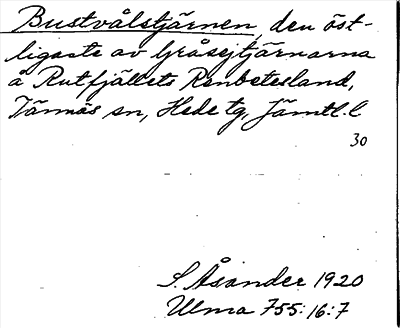 Bustvålstjärnen, den öst-
ligaste av Gråsejtjärnarna
å Rutfjällets Renbetesland,
Tännäs sn, Hede tg, Jämtl. l
30
S. Åsander 1920
Ulma 755:16:7